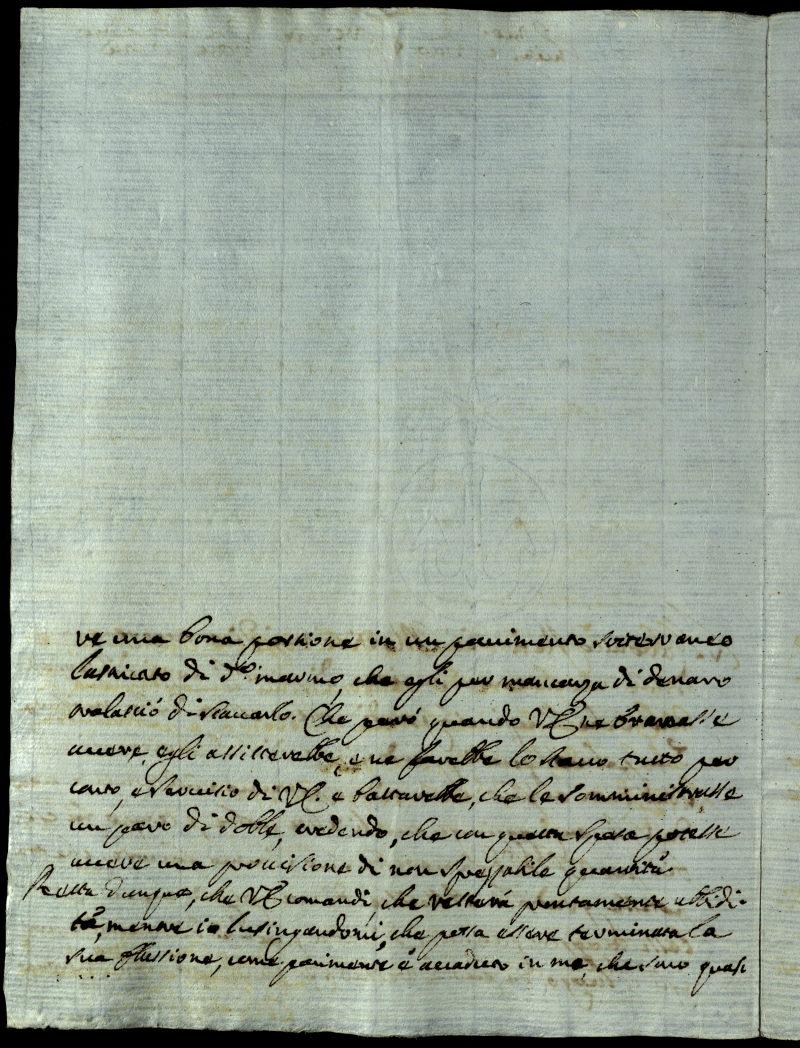 ve una bona portione in un pavimento sotteraneo
lastricato di d.o marmo, che egli per mancanza di denaro
tralasciò di staccarlo. Che però quando V.S. ne bramasse
avere, egli assisterebbe, e ne farebbe lo stacco tutto per
conto, e servitio di V.S. e bastarebbe, che le somministrasse
un paro di doble, credendo, che con questa spesa potesse
avere una provisione di non sprezzabile quantità.
Resta dunque, che V.S. comandi, che restarà puntamente obbedi-
ta, mentre io lusingandomi, che possa essere terminata la
sua flussione, come parimente è accaduto in me, che sono quasi